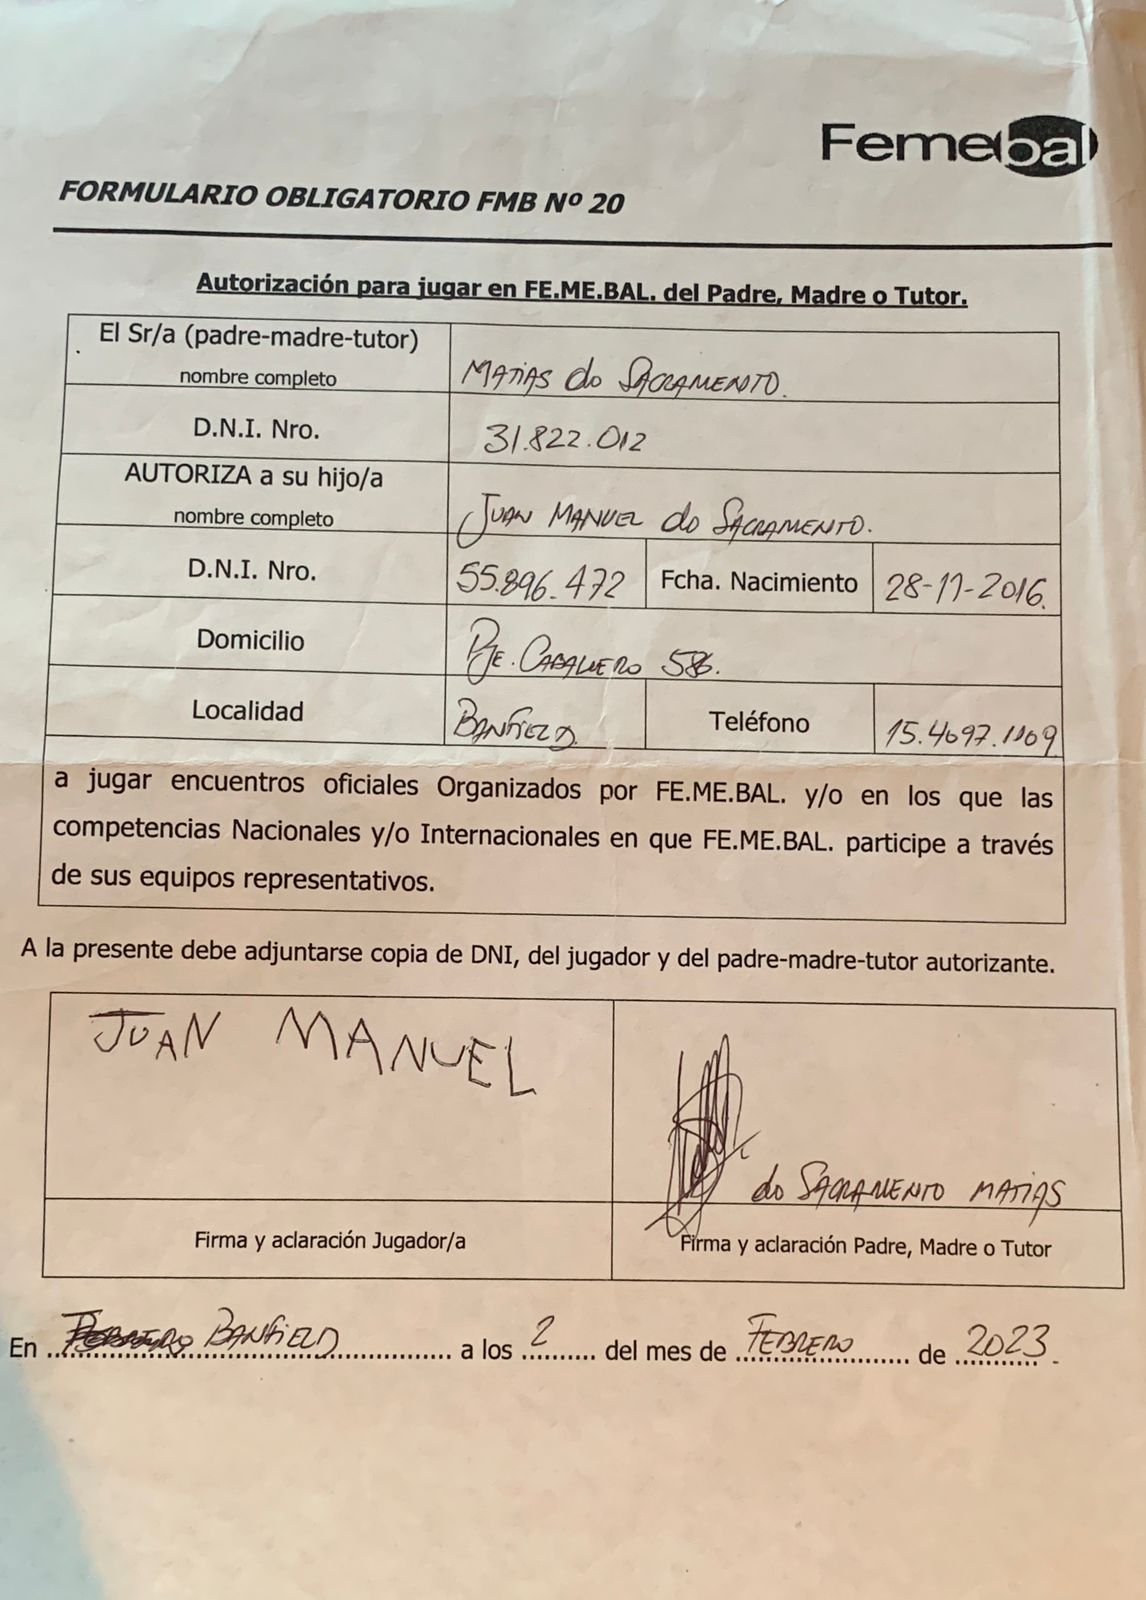 Femebal
FORMULARIO OBLIGATORIO FMB Nº 20
Autorización para jugar en FE.ME.BAL. del Padre, Madre o Tutor.
El Sr/a (padre-madre-tutor)
nombre completo
MATIAS do SACRAMENTO.
D.N.I. Nro.
31.822.012
AUTORIZA a su hijo/a
nombre completo
JUAN MANUEL do SACRAMENTO.
D.N.I. Nro.
55.896.472
Fcha. Nacimiento
28-11-2016.
Domicilio
PJE. CABALLERO 586.
Localidad
BANFIELD.
Teléfono
15.4097.1109
a jugar encuentros oficiales Organizados por FE.ME.BAL. y/o en los que las
competencias Nacionales y/o Internacionales en que FE.ME.BAL. participe a través
de sus equipos representativos.
A la presente debe adjuntarse copia de DNI, del jugador y del padre-madre-tutor autorizante.
JUAN MANUEL
do SACRAMENTO MATIAS
Firma y aclaración Jugador/a
Firma y aclaración Padre, Madre o Tutor
En BANFIELD a los 2 del mes de FEBRERO de 2023.